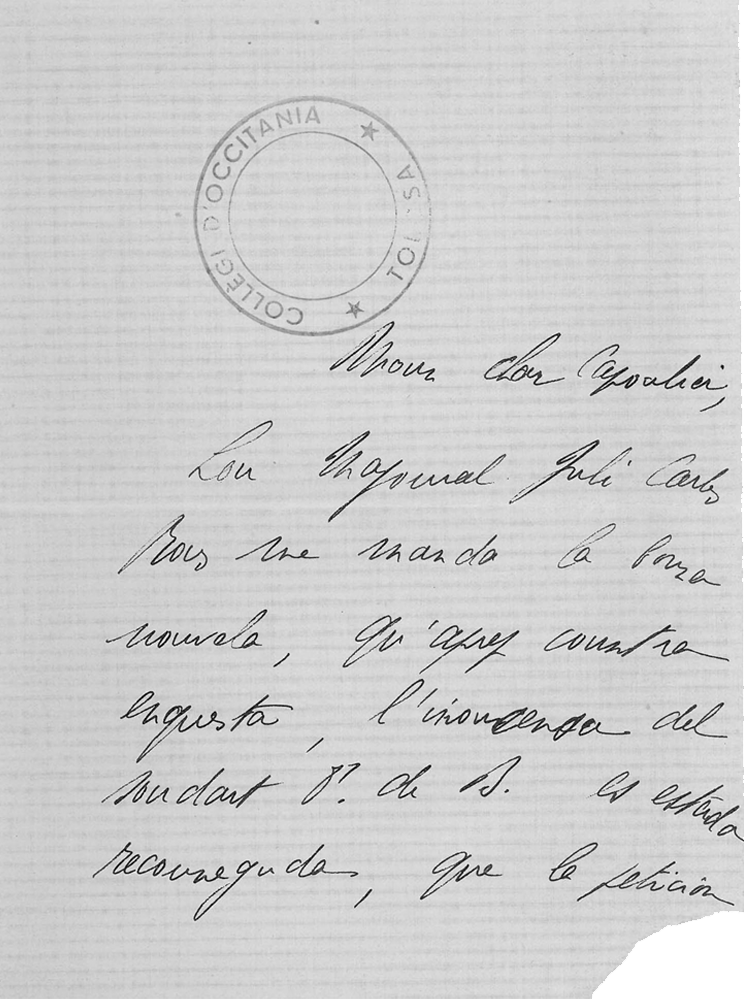 COLLÈGI D'OCCITANIA ★ AS. TOL ★
Moun char
Lou Majoural Juli Carles
Ros me manda la bouna
nouvela, qu'apref countra
enquesta, l'inoucensa del
soudart P. de B. es estada
recouneguda, que la peticion